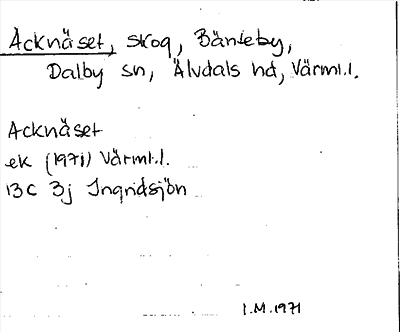 Äcknäset, skog, Bänteby,
Dalby sn, Älvdals hd, Värml.l.
Äcknäset
ek (1971) Värml.l.
13C 3j Ingridsjön
I.M. 1971